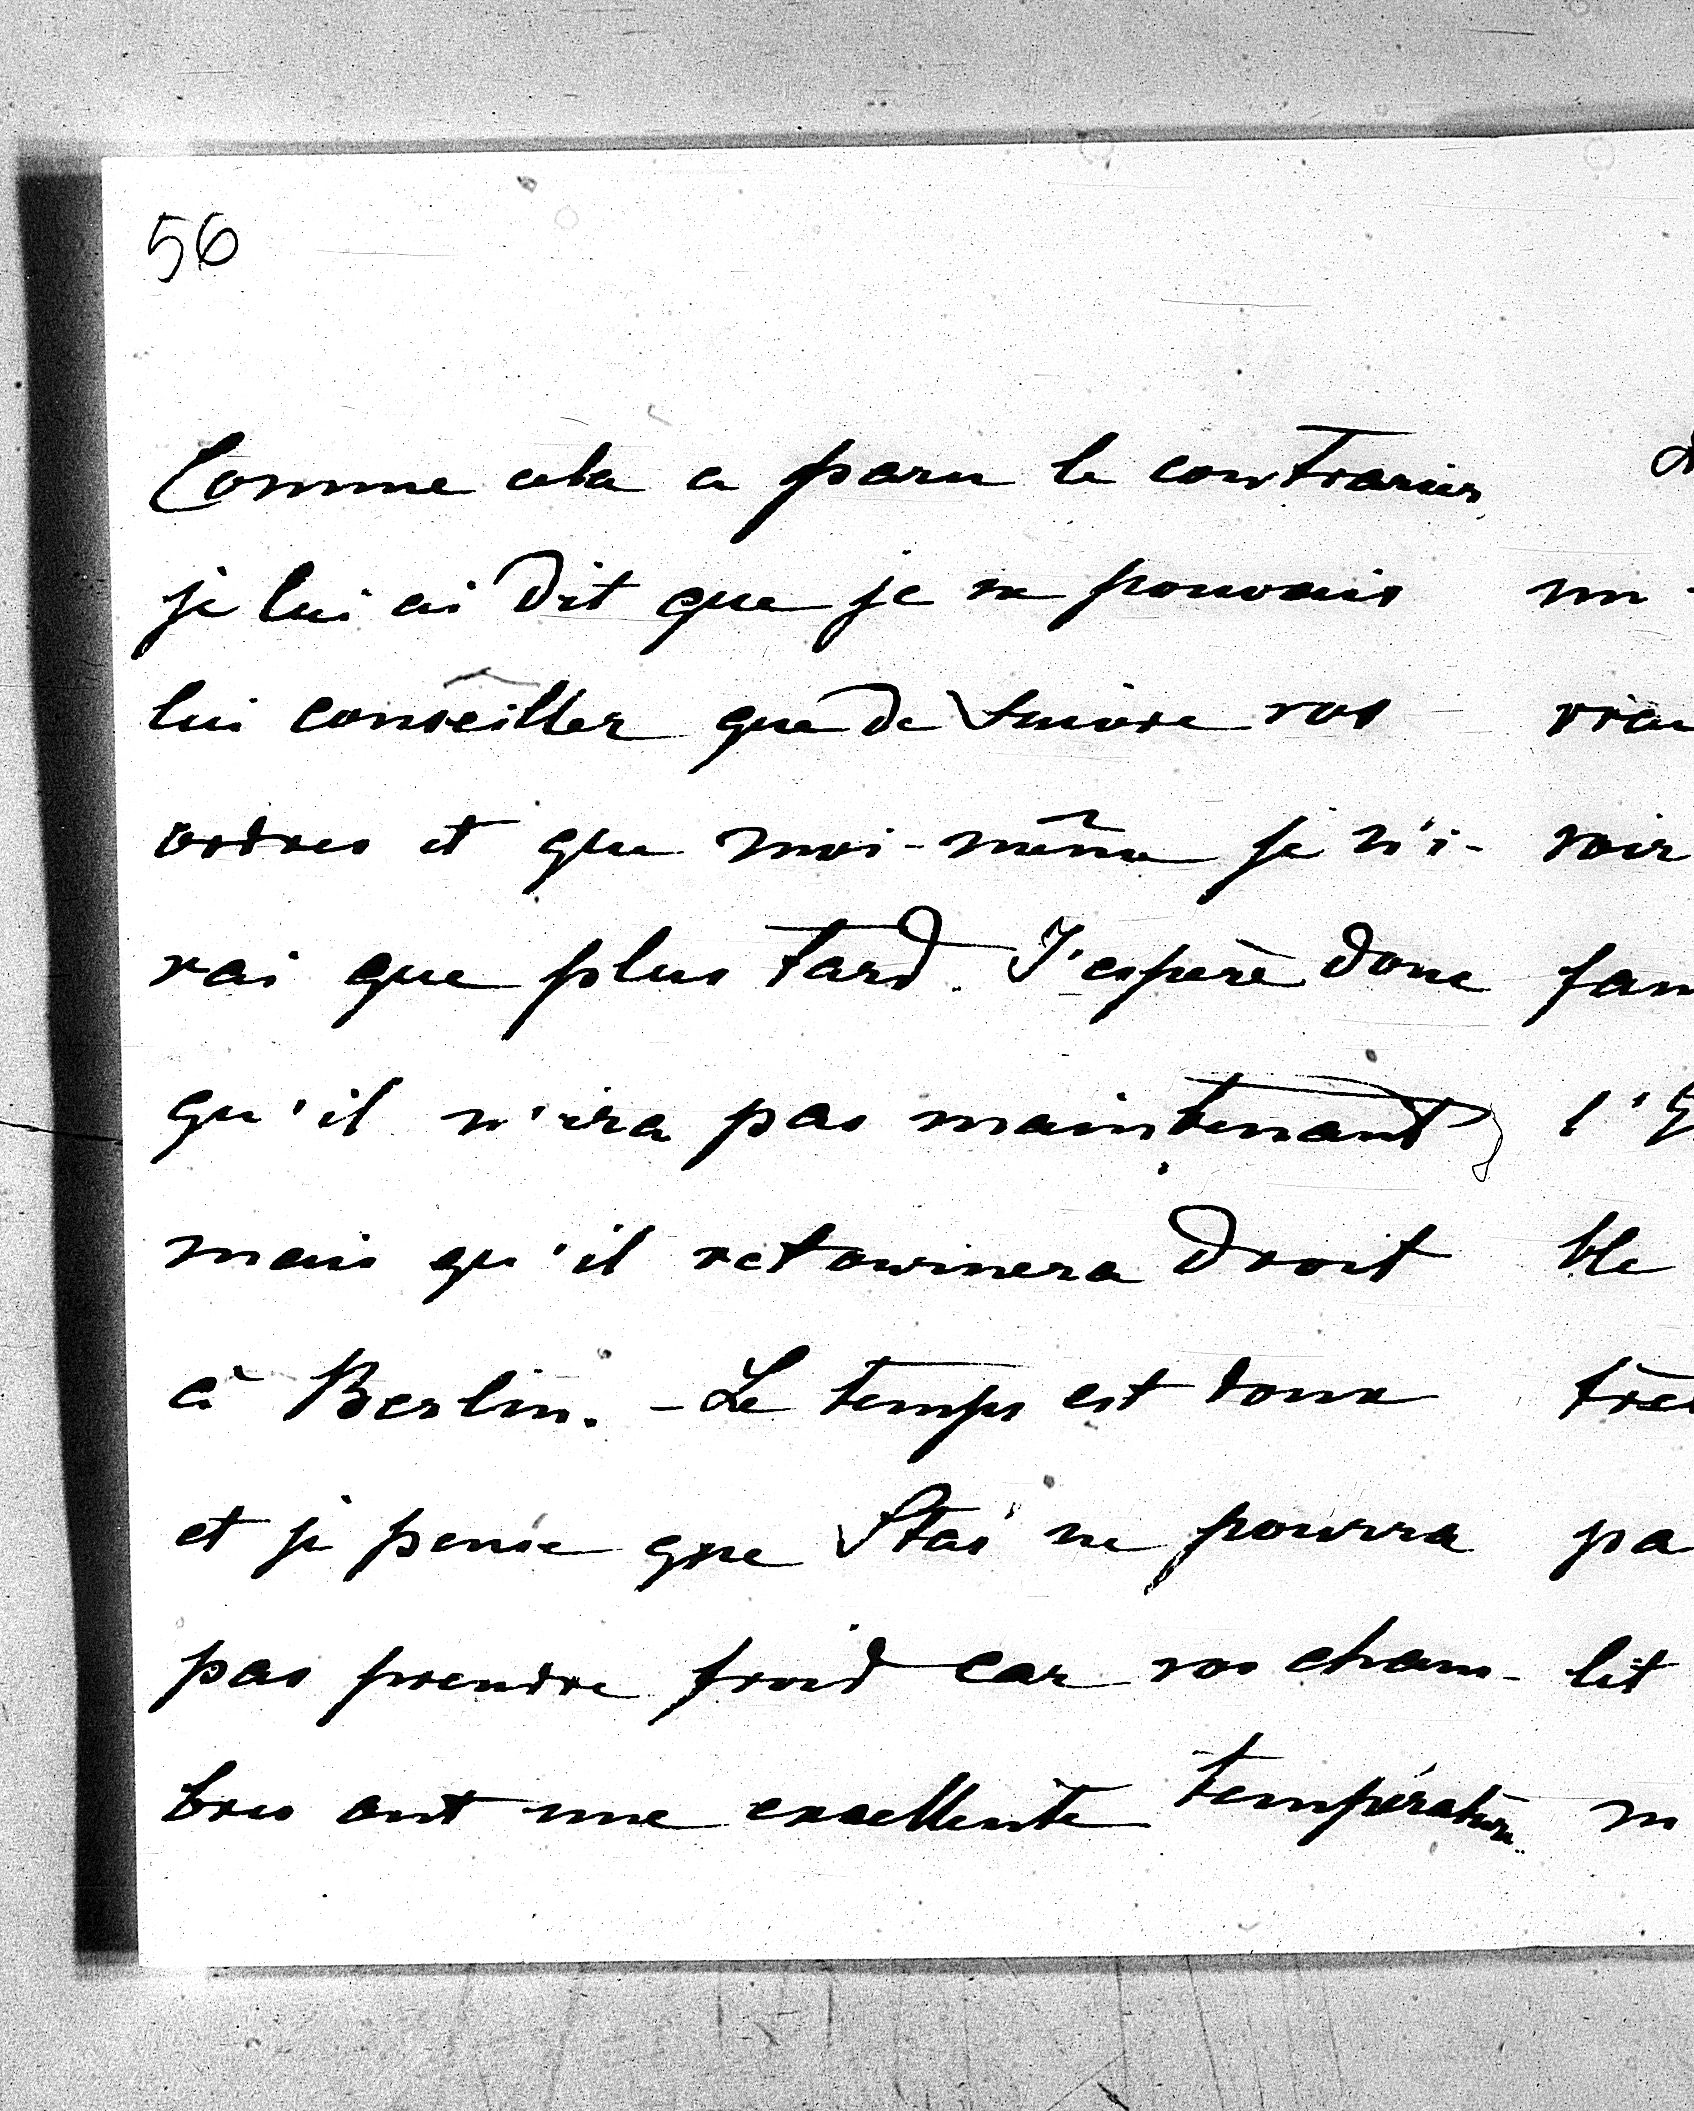 56
Comme cela a paru le contrarier
je lui ai dit que je ne pouvais
lui conseiller que de suivre vos
ordres et que moi-même je n'i-
rai que plus tard. J'espère donc
qu'il n'ira pas maintenant,
mais qu'il retournera droit
à Berlin. - Le temps est doux
et je pense que Stas ne pourra
pas prendre froid car vos cham-
bres ont une excellente température.
voir
l'
ble
pa
lit